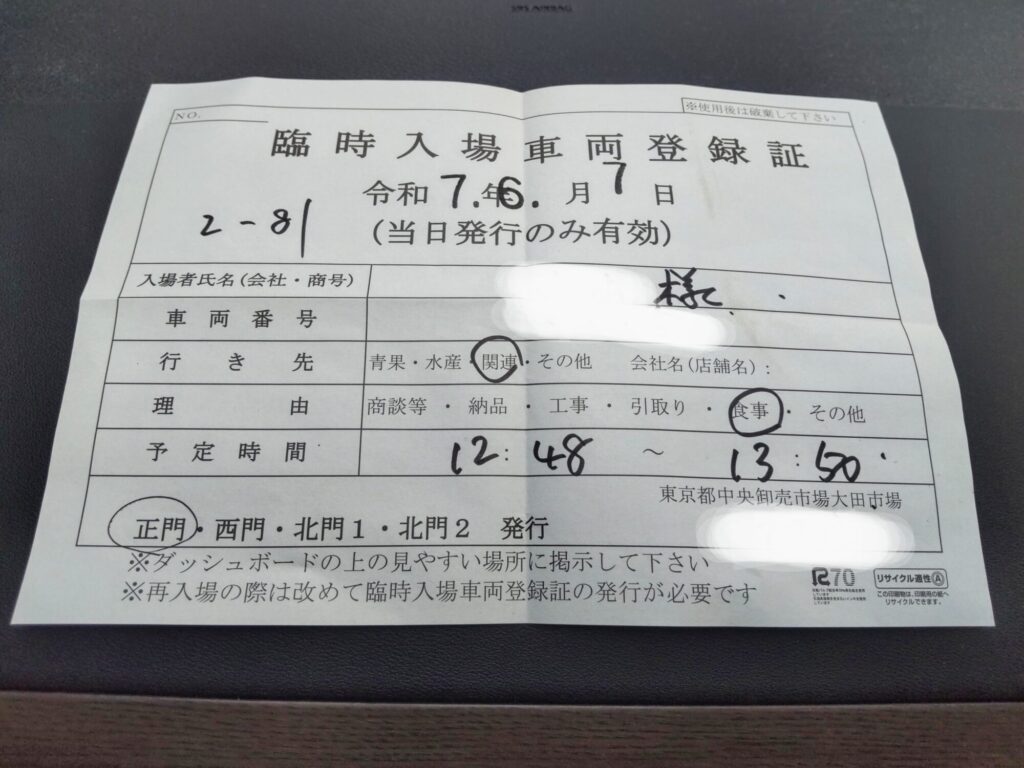 SRS AIRBAG
NO.
※使用後は破棄して下さい
臨時入場車両登録証
令和7.年6.月7日
2-81
(当日発行のみ有効)
入場者氏名(会社・商号) 様
車両番号
行き先 青果・水産・関連・その他 会社名(店舗名):
理由 商談等・納品・工事・引取り・食事・その他
予定時間 12:48～13:50
東京都中央卸売市場大田市場
正門・西門・北門1・北門2 発行
※ダッシュボードの上の見やすい場所に掲示して下さい
※再入場の際は改めて臨時入場車両登録証の発行が必要です
R70
リサイクル適性Ⓐ
この印刷物は、印刷用の紙へ
リサイクルできます。